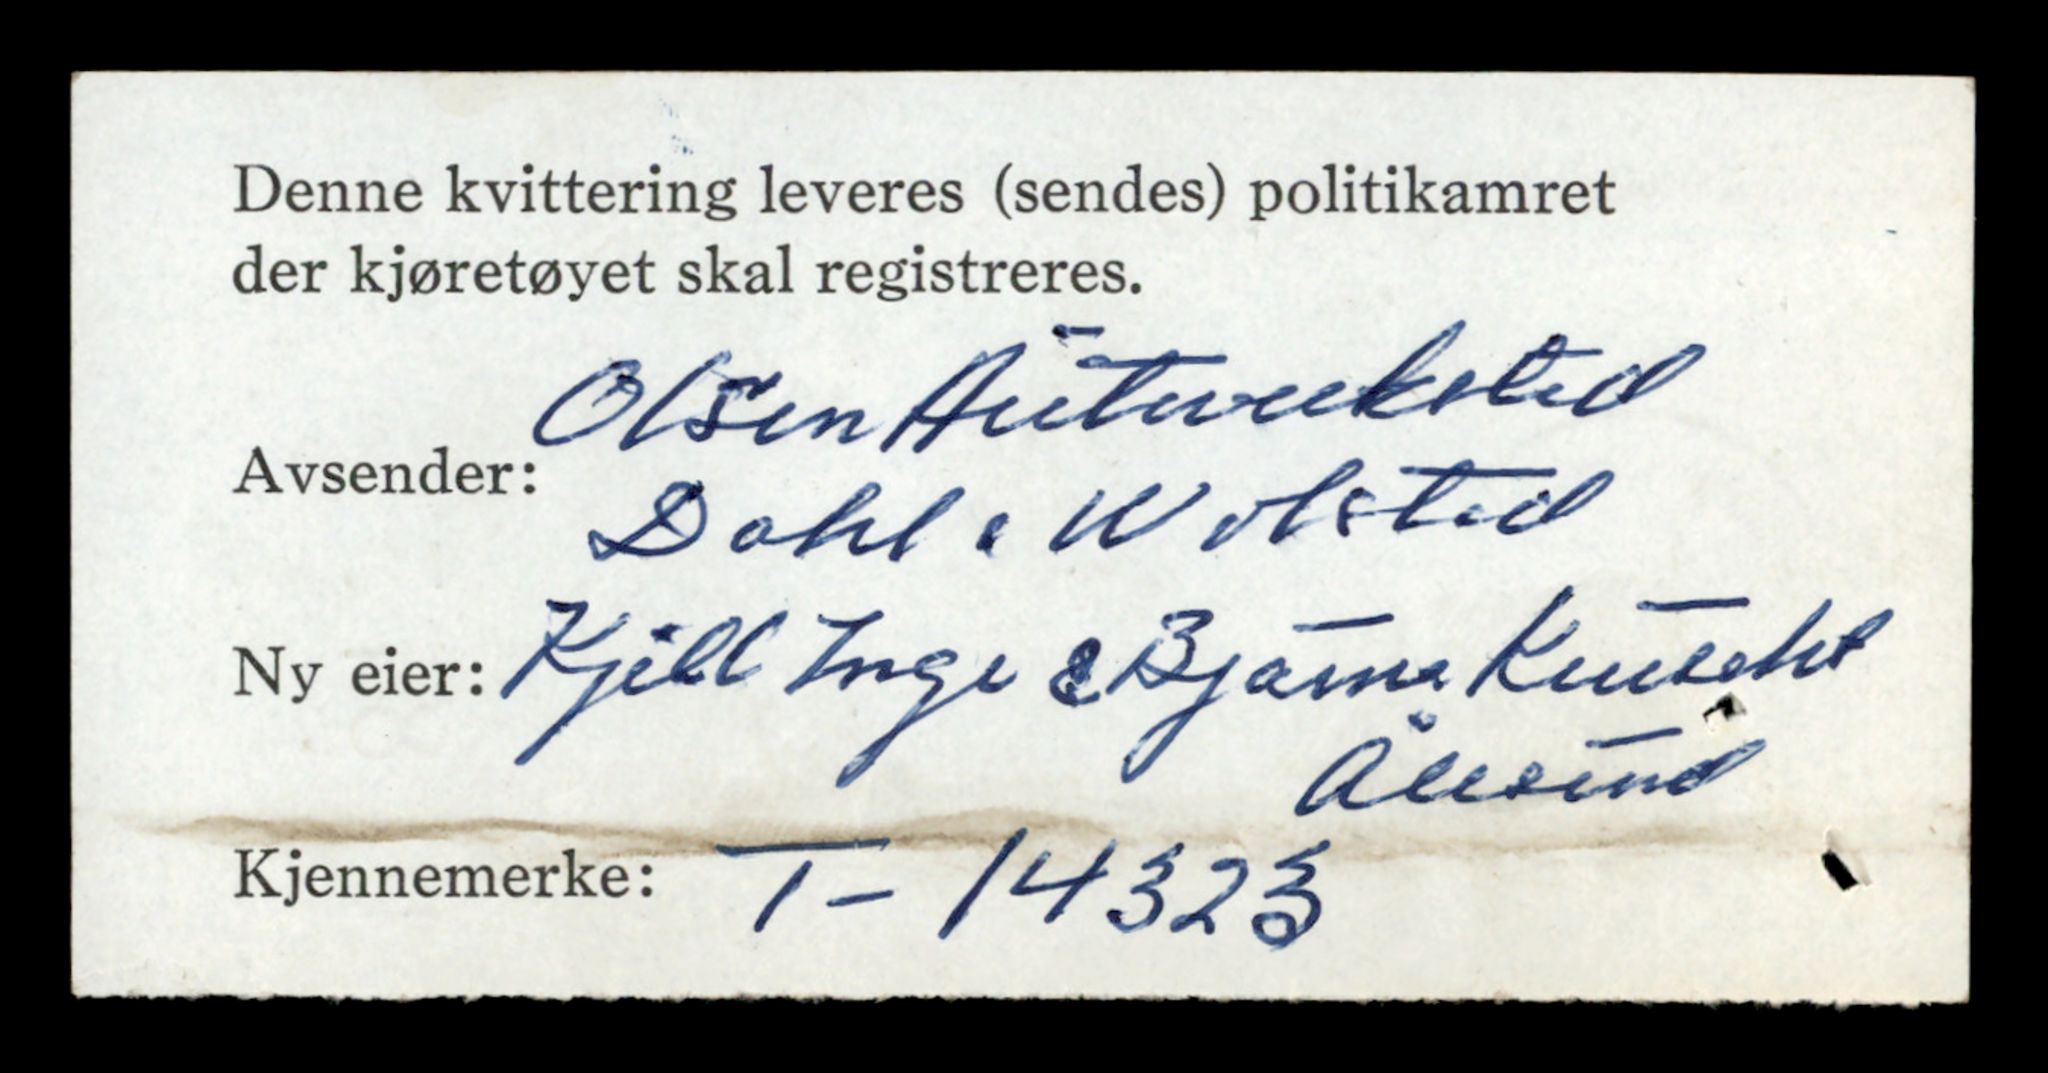 Denne kvittering leveres (sendes) politikamret
der kjøretøyet skal registreres.
Olsen
Avsender:
Dahl &
Ny eier: Kjell Inge & Bjarne
Ålesund
Kjennemerke: T-14323